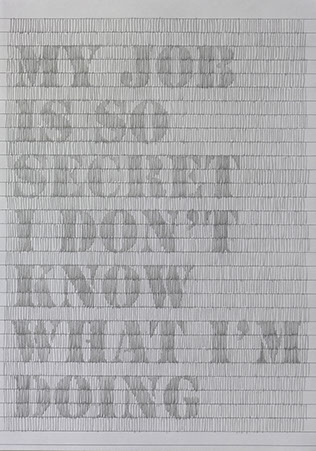 MY JOB
IS SO
SECRET
I DON'T
KNOW
WHAT I'M
DOING